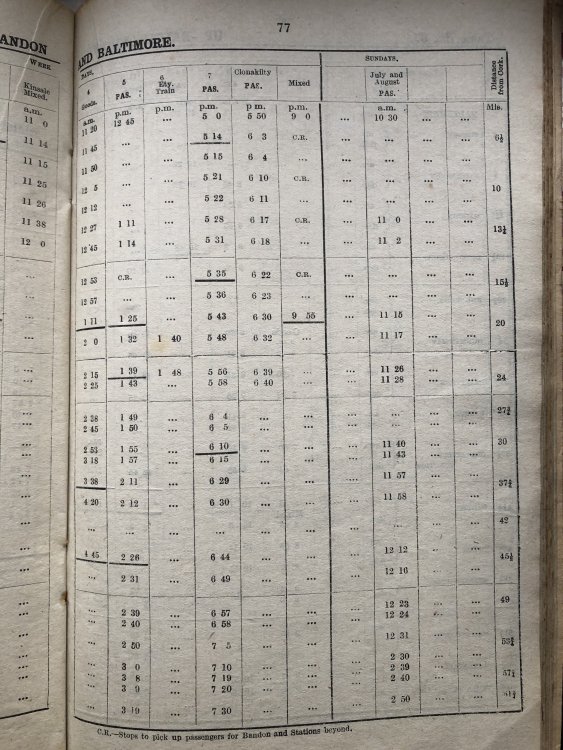 77
ANDON
AND BALTIMORE.
WEEK
DAYS.
SUNDAYS.
Kinsale Mixed.
4 Goods.
5 PAS.
6 Ety. Train
7 PAS.
Clonakilty PAS.
Mixed
July and August PAS.
Distance from Cork.
a.m. a.m. p.m. p.m. p.m. p m. p.m. a.m. Mls.
11 0 11 20 12 45 ... 5 0 5 50 9 0 ... 10 30 ... ...
11 14 11 45 ... ... 5 14 6 3 C.R. ... ... ... ... 6½
11 15 11 50 ... ... 5 15 6 4 ... ... ... ... ...
11 25 12 5 ... ... 5 21 6 10 C.R. ... ... ... ... 10
11 26 12 12 ... ... 5 22 6 11 ... ... ... ... ...
11 38 12 27 1 11 ... 5 28 6 17 C.R. ... 11 0 ... ... 13¼
12 0 12 45 1 14 ... 5 31 6 18 ... ... 11 2 ... ...
... 12 53 C.R. ... 5 35 6 22 C.R. ... ... ... ... 15½
... 12 57 ... ... 5 36 6 23 ... ... ... ... ...
... 1 11 1 25 ... 5 43 6 30 9 55 ... 11 15 ... ... 20
... 2 0 1 32 1 40 5 48 6 32 ... ... 11 17 ... ...
... 2 15 1 39 1 48 5 56 6 39 ... ... 11 26 ... ... 24
... 2 25 1 43 ... 5 58 6 40 ... ... 11 28 ... ...
... 2 38 1 49 ... 6 4 ... ... ... ... ... ... 27¾
... 2 45 1 50 ... 6 5 ... ... ... ... ... ...
... 2 53 1 55 ... 6 10 ... ... ... 11 40 ... ... 30
... 3 18 1 57 ... 6 15 ... ... ... 11 43 ... ...
... 3 38 2 11 ... 6 29 ... ... ... 11 57 ... ... 37¾
... 4 20 2 12 ... 6 30 ... ... ... 11 58 ... ...
... ... ... ... ... ... ... ... ... ... ... 42
... 4 45 2 26 ... 6 44 ... ... ... 12 12 ... ... 45½
... ... 2 31 ... 6 49 ... ... ... 12 16 ... ...
... ... 2 39 ... 6 57 ... ... ... 12 23 ... ... 49
... ... 2 40 ... 6 58 ... ... ... 12 24 ... ...
... ... 2 50 ... 7 5 ... ... ... 12 31 ... ... 53¾
... ... ... ... ... ... ... ... ... 2 30 ... ...
... ... 3 0 ... 7 10 ... ... ... 2 39 ... ...
... ... 3 8 ... 7 19 ... ... ... 2 40 ... ...
... ... 3 9 ... 7 20 ... ... ...
... ... 3 19 ... 7 30 ... ... ... 2 50 ... ...
C.R.—Stops to pick up passengers for Bandon and Stations beyond.